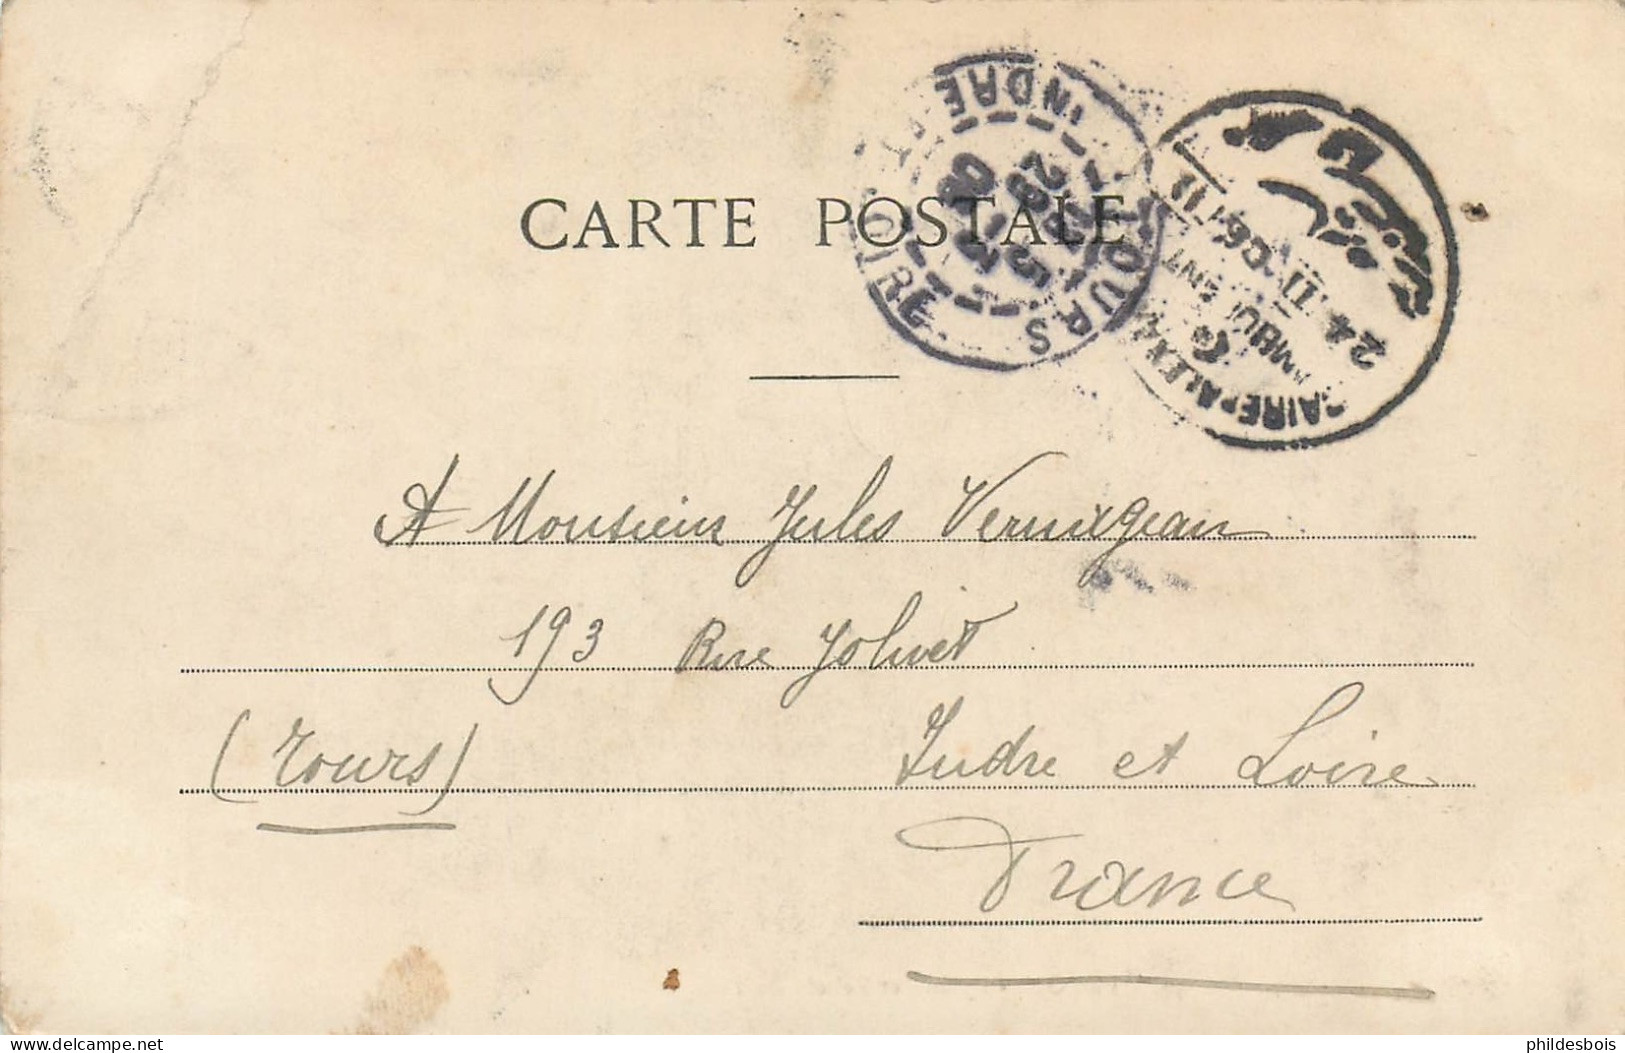 CARTE POSTALE
TOURS
INDRE ET LOIRE
CAIRE ALEXA
AMBULANT
24 II 06
A Monsieur Jules Vernugeau
193 Rue Jolivet
(Tours) Indre et Loire
France
delcampe.net
phildesbois